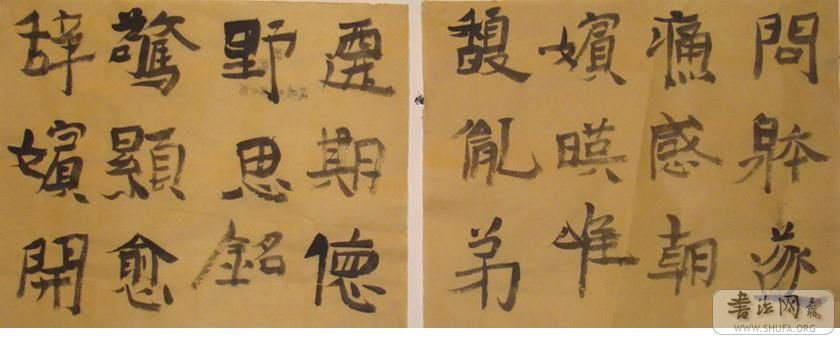 問躰
痛感朝
嬪暎唯
馥胤弟
期德
野思銘
驚顯愈
辞嬪開
书法网
WWW.SHUFA.ORG